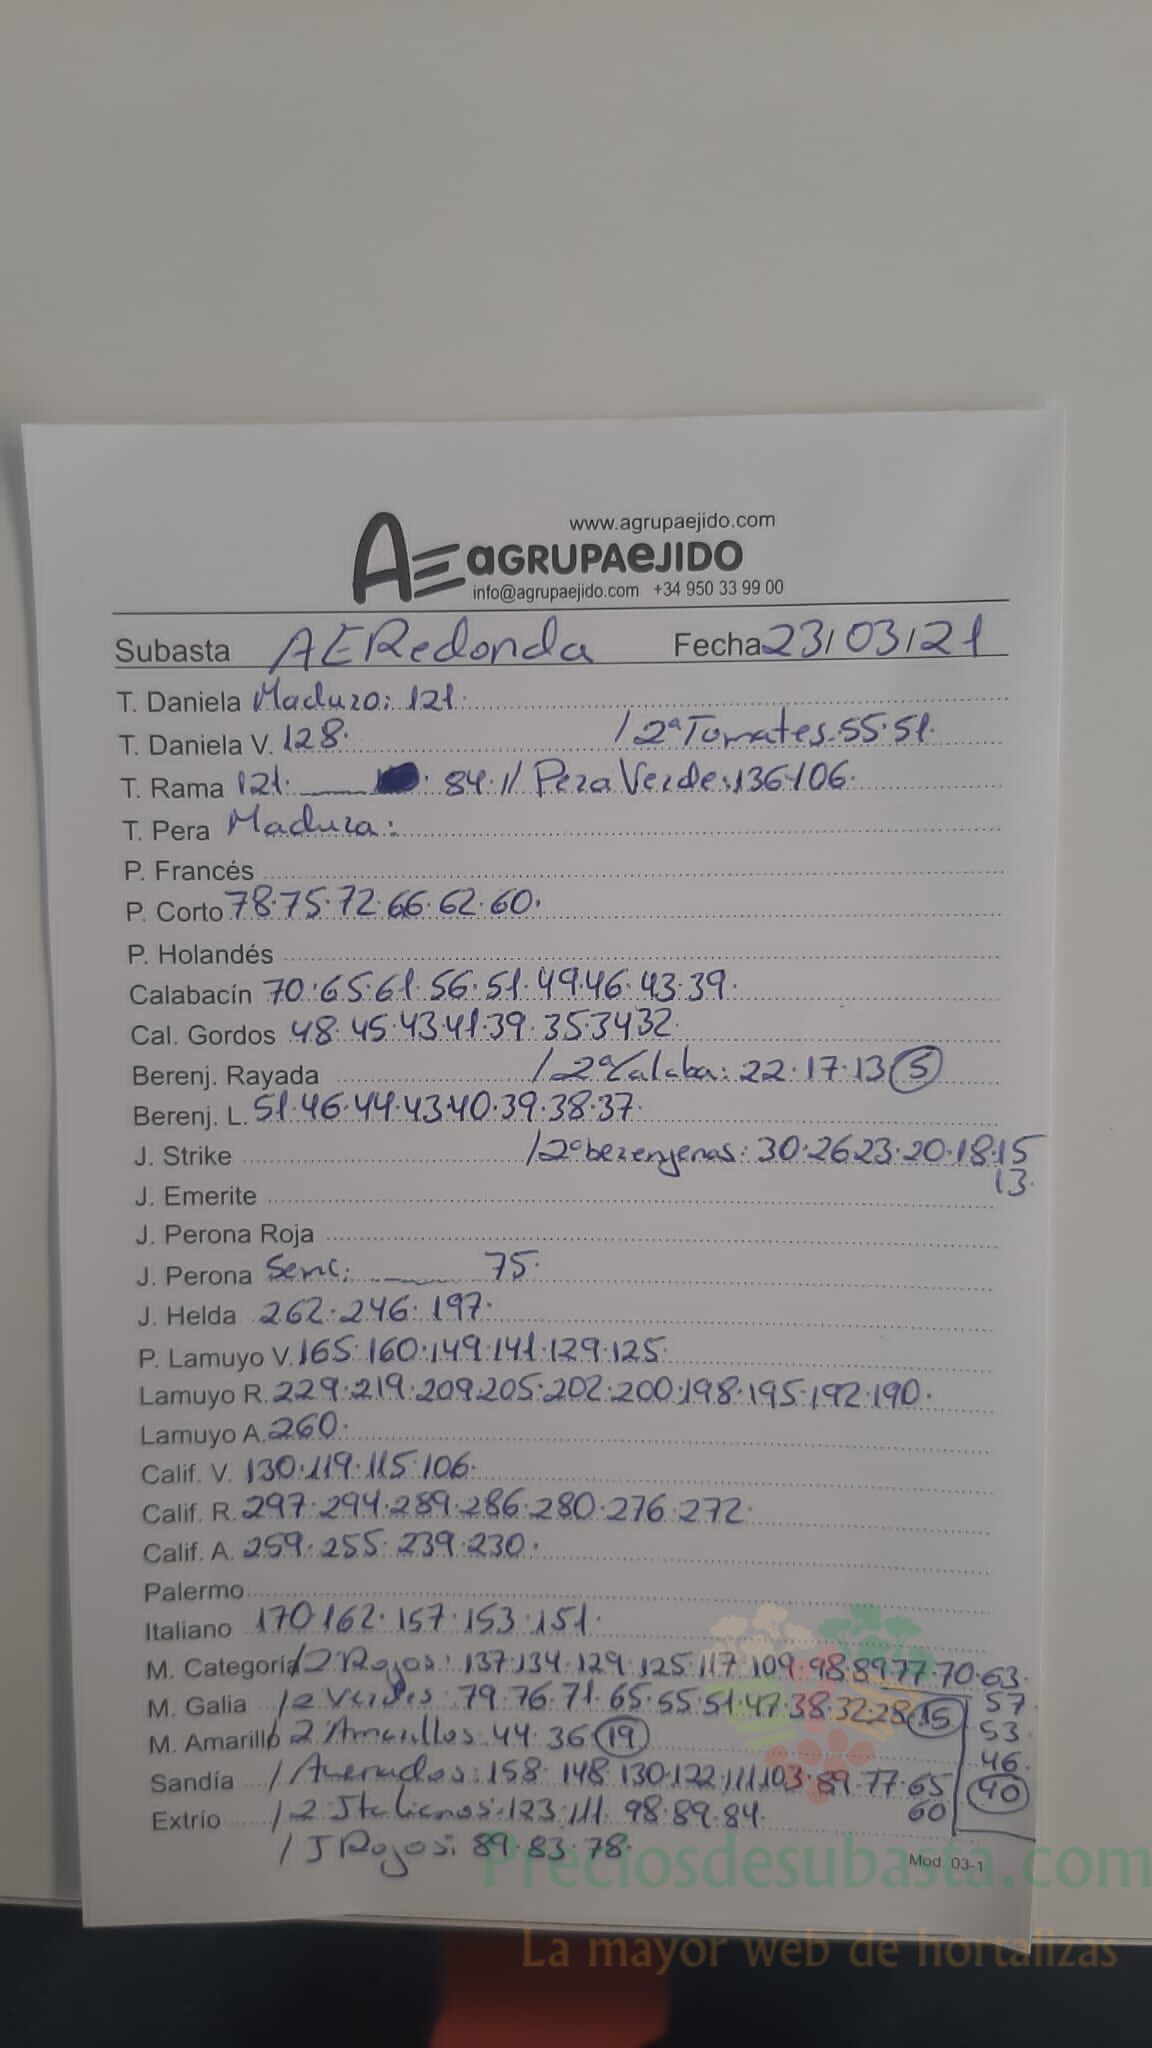 www.agrupaejido.com
AE AGRUPAEJIDO
info@agrupaejido.com +34 950 33 99 00
Subasta AERedonda Fecha 23/03/21
T. Daniela Maduro: 121.
T. Daniela V. 128. / 2ª Tomates. 55. 51.
T. Rama 121. 84. // Pera Verde: 136. 106.
T. Pera Madura:
P. Francés
P. Corto 78. 75. 72. 66. 62. 60.
P. Holandés
Calabacín 70. 65. 61. 56. 51. 49. 46. 43. 39.
Cal. Gordos 48. 45. 43. 41. 39. 35. 34 32.
Berenj. Rayada / 2ª Calaba: 22. 17. 13 5
Berenj. L. 51. 46. 44. 43. 40. 39. 38. 37.
J. Strike / 2ª berenjenas: 30. 26 23. 20. 18. 15
13.
J. Emerite
J. Perona Roja
J. Perona Semi: 75.
J. Helda 262. 246. 197.
P. Lamuyo V. 165. 160. 149. 141. 129. 125.
Lamuyo R. 229. 219. 209. 205. 202. 200. 198. 195. 192. 190.
Lamuyo A. 260.
Calif. V. 130. 119. 115. 106.
Calif. R. 297. 294. 289. 286. 280. 276. 272
Calif. A. 259. 255. 239. 230.
Palermo
Italiano 170 162. 157. 153. 151.
M. Categoría / 2 Rojos: 137. 134. 129. 125. 117. 109. 98. 89 77. 70. 63.
M. Galia / 2 Verdes: 79. 76. 71. 65. 55. 51. 47. 38. 32. 28 15 57.
M. Amarillo 2 Amarillos. 44. 36 19 53
46.
Sandía / Asurados: 158. 148 130. 122. 111. 103. 89. 77. 65 40
60
Extrío / 2 Italianos: 123. 111. 98. 89. 84.
/ J Rojos: 89. 83. 78.
Mod. 03-1
Preciosdesubasta.com
La mayor web de hortalizas